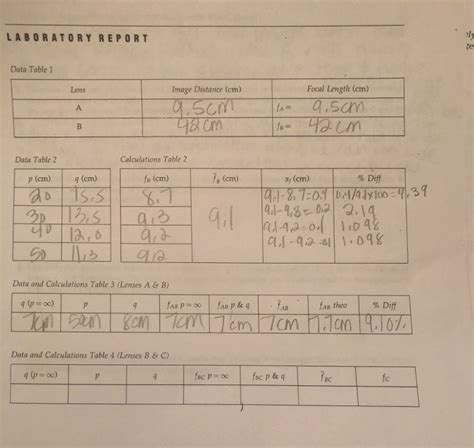 LABORATORY REPORT
Data Table 1
Lens Image Distance (cm) Focal Length (cm)
A 9.5cm fA = 9.5cm
B 42cm fB = 42cm
Data Table 2 Calculations Table 2
p (cm) q (cm) fB (cm) f̄B (cm) xf (cm) % Diff
20 15.5 8.7 9.1 9.1-8.7=0.4 0.4/9.1x100=4.39
30 13.5 9.3 9.1-9.3=0.2 2.19
40 12.0 9.2 9.1-9.2=0.1 1.098
50 11.3 9.2 9.1-9.2=0.1 1.098
Data and Calculations Table 3 (Lenses A & B)
q (p = ∞) p q fAB p = ∞ fAB p & q f̄AB fAB theo % Diff
7cm 50cm 8cm 7cm 7cm 7cm 7.7cm 9.10%
Data and Calculations Table 4 (Lenses B & C)
q (p = ∞) p q fBC p = ∞ fBC p & q f̄BC fC